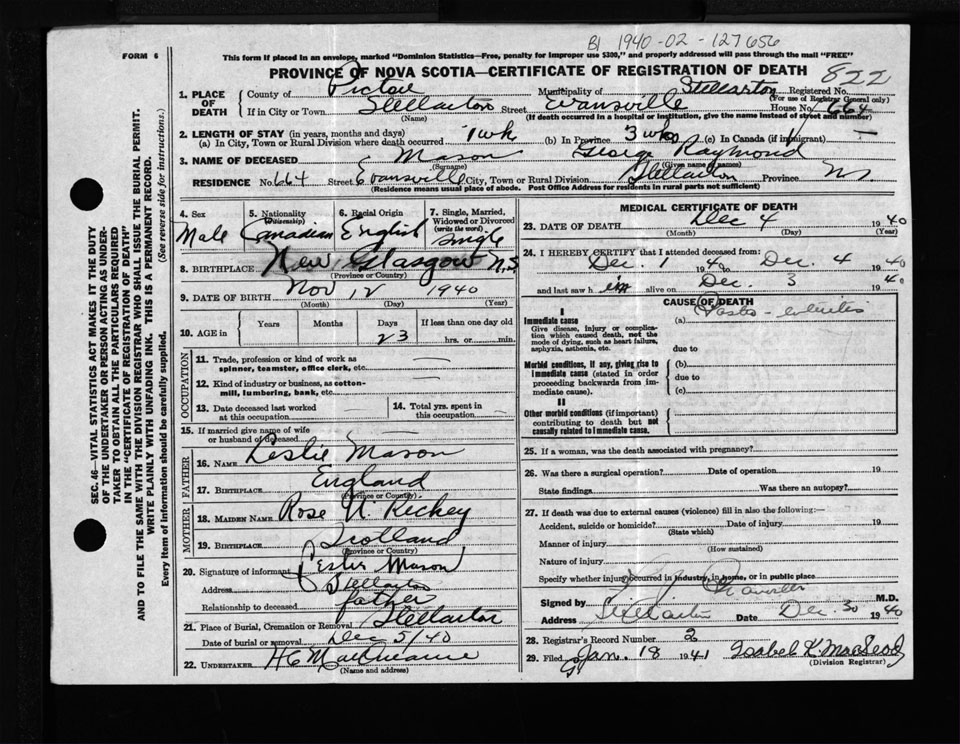 B1 1940-02-127656
FORM 6
This form if placed in an envelope, marked "Dominion Statistics—Free, penalty for improper use $300," and properly addressed will pass through the mail "FREE"
PROVINCE OF NOVA SCOTIA—CERTIFICATE OF REGISTRATION OF DEATH 822
SEC. 46—VITAL STATISTICS ACT MAKES IT THE DUTY
OF THE UNDERTAKER OR PERSON ACTING AS UNDER-
TAKER TO OBTAIN ALL THE PARTICULARS REQUIRED
IN THE "CERTIFICATE OF REGISTRATION OF DEATH"
AND TO FILE THE SAME WITH THE DIVISION REGISTRAR WHO SHALL ISSUE THE BURIAL PERMIT.
WRITE PLAINLY WITH UNFADING INK. THIS IS A PERMANENT RECORD.
Every item of information should be carefully supplied. (See reverse side for instructions.)
1. PLACE OF DEATH County of Pictou Municipality of Stellarton Registered No.
(For use of Registrar General only)
If in City or Town Stellarton Street Evansville House No. 664
(Name) (If death occurred in a hospital or institution, give the name instead of street and number)
2. LENGTH OF STAY (in years, months and days)
(a) In City, Town or Rural Division where death occurred 1 wk (b) In Province 3 wks (c) In Canada (if immigrant)
3. NAME OF DECEASED Mason George Raymond
(Surname) (Given names)
RESIDENCE No. 664 Street Evansville City, Town or Rural Division Stellarton Province N.S.
(Residence means usual place of abode. Post Office Address for residents in rural parts not sufficient)
4. Sex Male
5. Nationality (Citizenship) Canadian
6. Racial Origin English
7. Single, Married, Widowed or Divorced (write the word) Single
8. BIRTHPLACE New Glasgow N.S.
(Province or Country)
9. DATE OF BIRTH Nov 12 1940
(Month) (Day) (Year)
10. AGE in Years Months Days 23 If less than one day old hrs. or min.
OCCUPATION
11. Trade, profession or kind of work as spinner, teamster, office clerk, etc. —
12. Kind of industry or business, as cotton-mill, lumbering, bank, etc. —
13. Date deceased last worked at this occupation —
14. Total yrs. spent in this occupation —
15. If married give name of wife or husband of deceased —
FATHER
16. NAME Leslie Mason
17. BIRTHPLACE England
(Province or Country)
MOTHER
18. MAIDEN NAME Rose N. Kickey
19. BIRTHPLACE Scotland
(Province or Country)
20. Signature of informant Lester Mason
Address Stellarton
Relationship to deceased father
21. Place of Burial, Cremation or Removal Stellarton
Date of burial or removal Dec 5/40
22. UNDERTAKER
(Name and address)
MEDICAL CERTIFICATE OF DEATH
23. DATE OF DEATH Dec 4 1940
(Month) (Day) (Year)
24. I HEREBY CERTIFY that I attended deceased from:
Dec. 1 1940 to Dec. 4 1940
and last saw him alive on Dec. 3 1940
CAUSE OF DEATH
I
Immediate cause (a) Gastro-enteritis
Give disease, injury or complication which caused death, not the mode of dying, such as heart failure, asphyxia, asthenia, etc.
due to
Morbid conditions, if any, giving rise to immediate cause (stated in order proceeding backwards from immediate cause).
(b)
due to
(c)
II
Other morbid conditions (if important) contributing to death but not causally related to immediate cause.
25. If a woman, was the death associated with pregnancy?
26. Was there a surgical operation? Date of operation 19
State findings Was there an autopsy?
27. If death was due to external causes (violence) fill in also the following:—
Accident, suicide or homicide? Date of injury 19
(State which)
Manner of injury
(How sustained)
Nature of injury
Specify whether injury occurred in industry, in home, or in public place
Signed by M.D.
Address Stellarton Date Dec. 30 1940
28. Registrar's Record Number 2
29. Filed Jan. 18 1941 Isabel K. MacLeod
(Division Registrar)